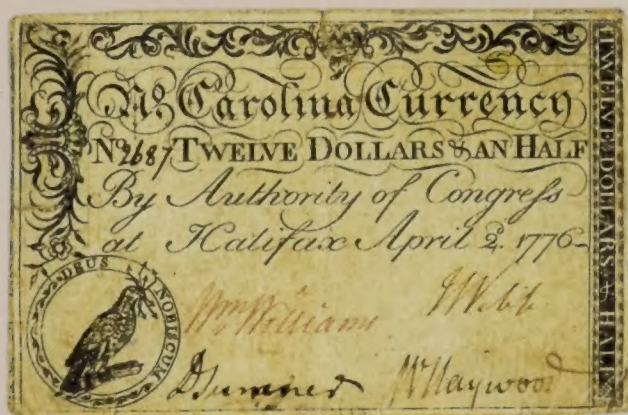 No. Carolina Currency
No. 2687 TWELVE DOLLARS & AN HALF
By Authority of Congress
at Halifax April 2d. 1776
DEUS NOBISCUM
Wm Williams
J Webb
D Sumner
W Haywood
TWELVE DOLLARS & HALF